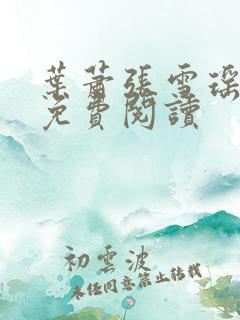 葉蕭張雪瑤
免費閱讀
初雲波
未經同意禁止轉載